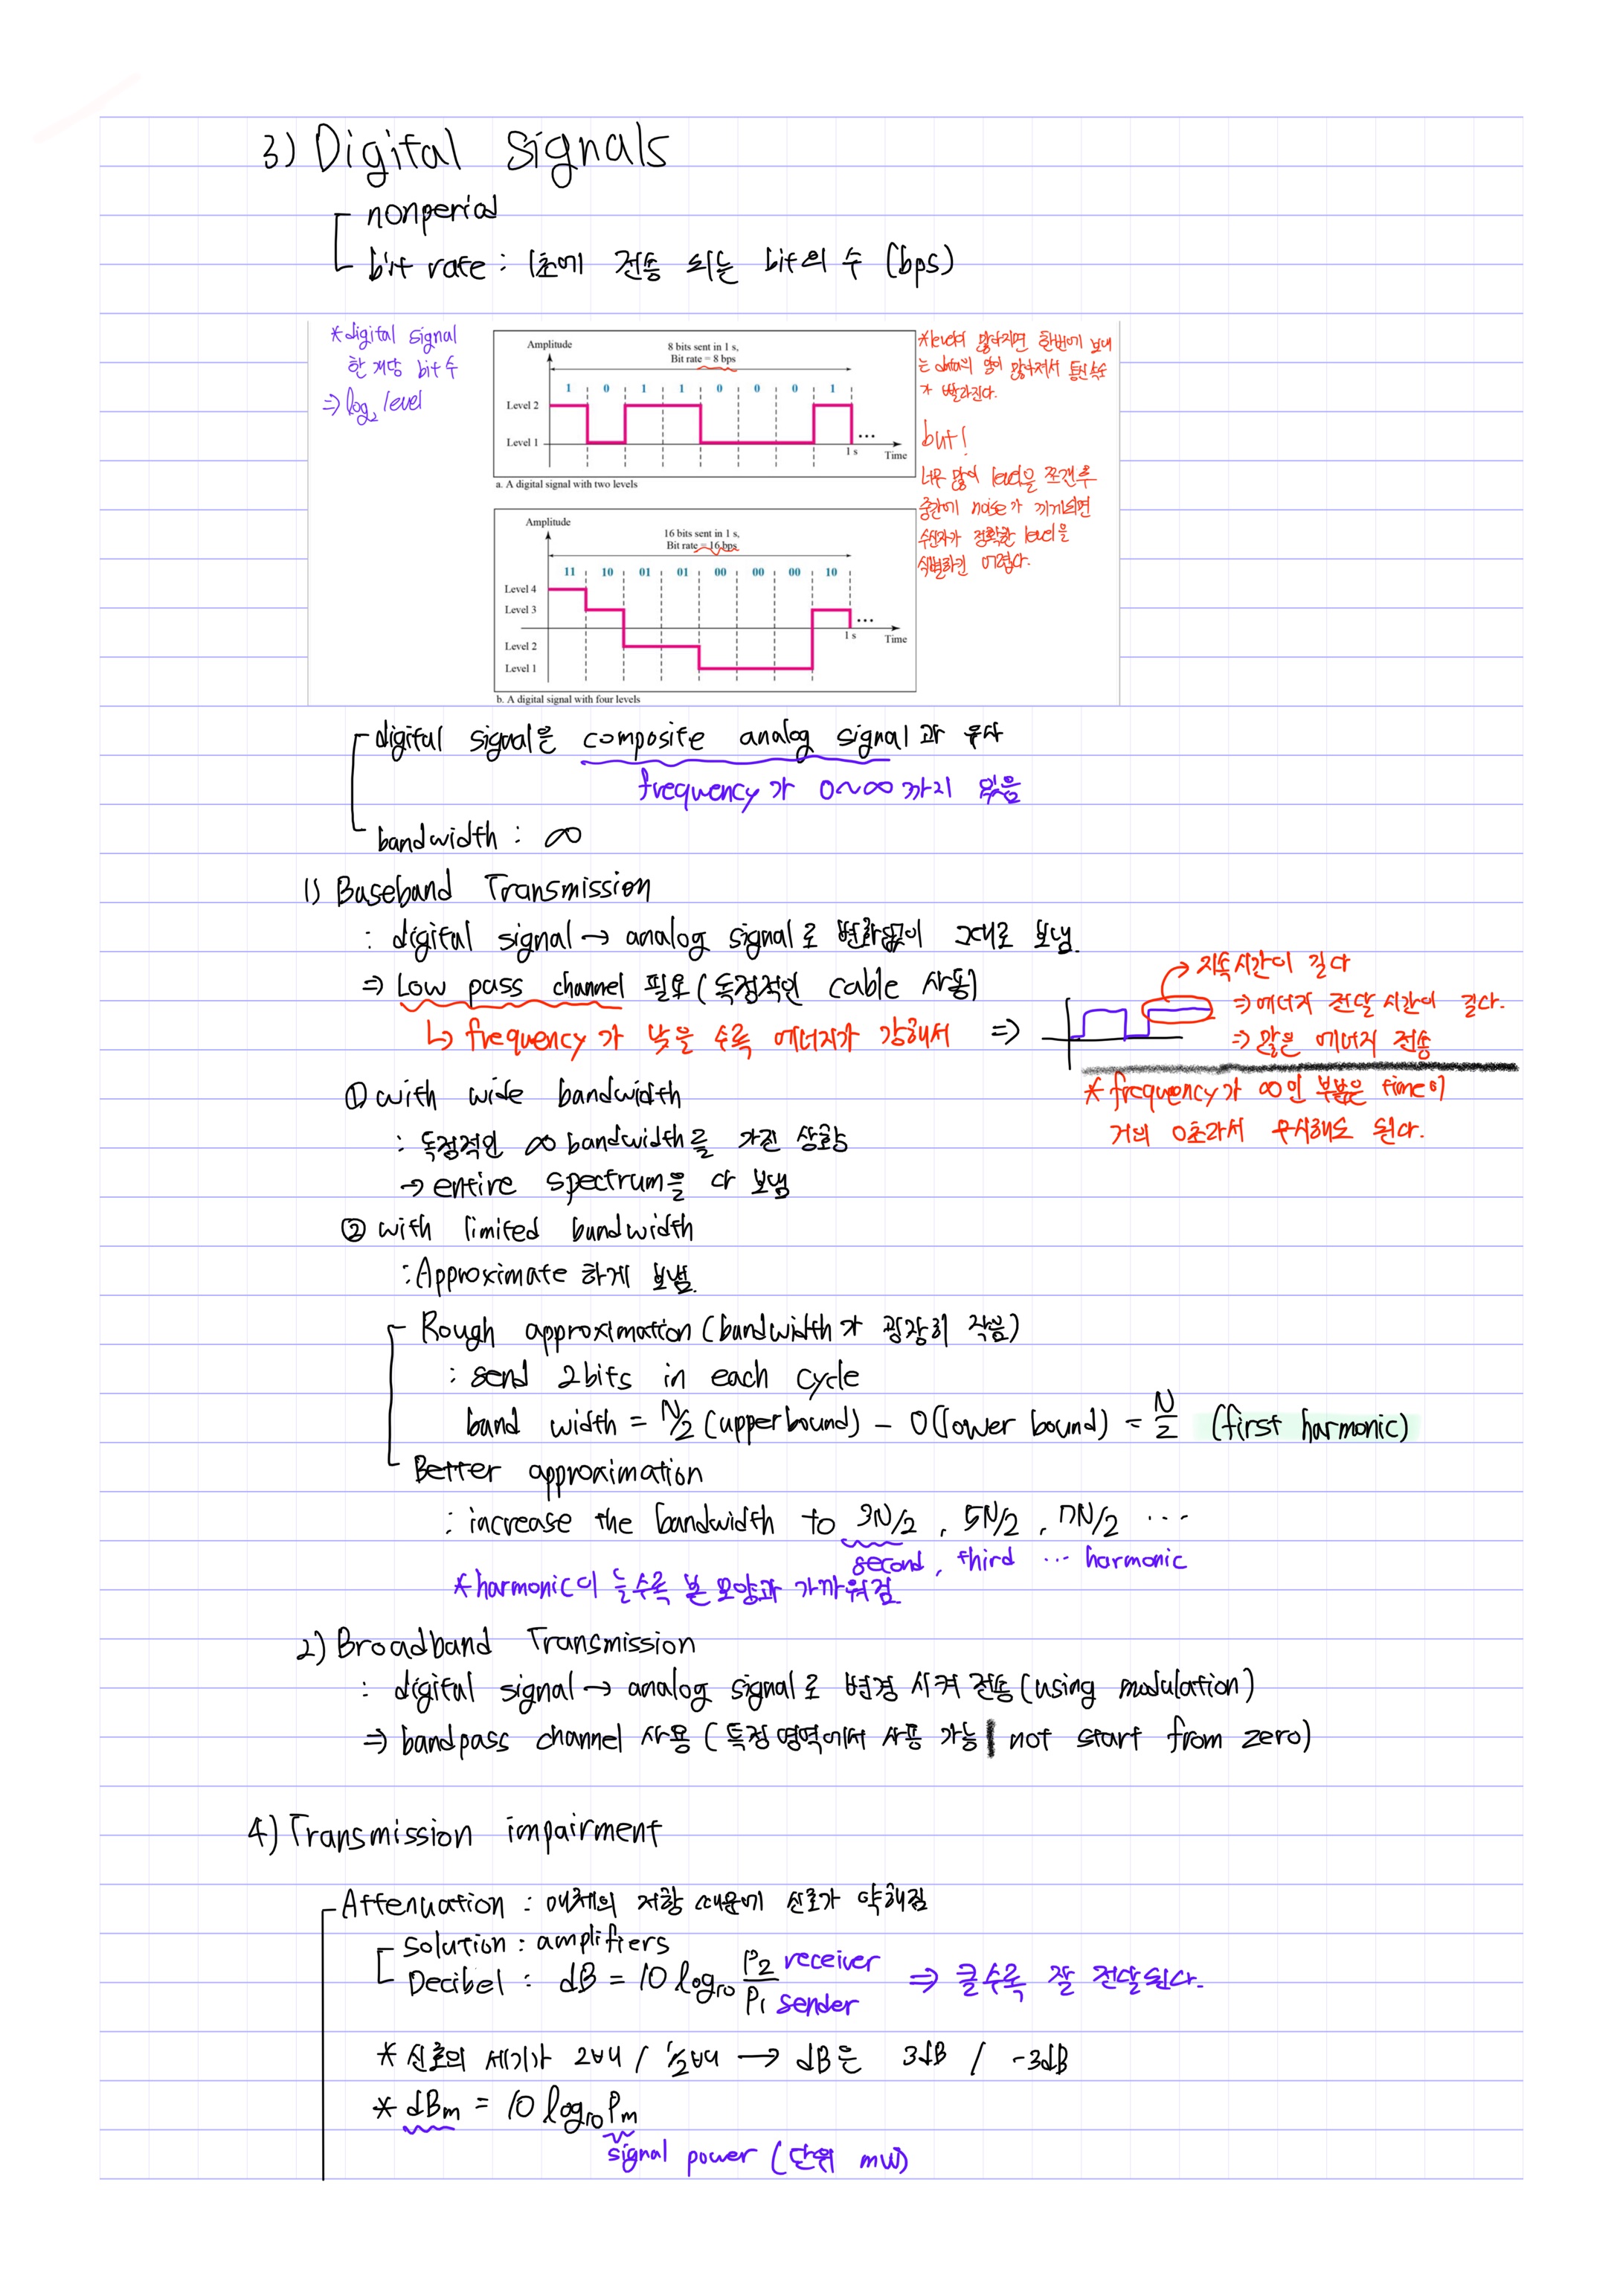 3) Digital Signals
nonperiod
bit rate : 1초에 전송 되는 bit의 수 (bps)
*digital signal
한 개당 bit 수
⇒ log₂ level
Amplitude
8 bits sent in 1 s,
Bit rate = 8 bps
1 0 1 1 0 0 0 1
Level 2
Level 1
...
1 s
Time
a. A digital signal with two levels
*level이 많아지면 한번에 보내
는 data의 양이 많아져서 통신속도
가 빨라진다.
but!
너무 많이 level을 쪼갠후
중간에 noise가 끼게되면
수신자가 정확한 level을
식별하긴 어렵다.
Amplitude
16 bits sent in 1 s,
Bit rate = 16 bps
11 10 01 01 00 00 00 10
Level 4
Level 3
Level 2
Level 1
...
1 s
Time
b. A digital signal with four levels
digital signal은 composite analog signal과 유사
frequency가 0~∞까지 있음
bandwidth : ∞
1) Baseband Transmission
: digital signal → analog signal로 변화없이 그대로 보냄.
⇒ Low pass channel 필요 (독점적인 cable 사용)
↳ frequency가 낮을 수록 에너지가 강해서 ⇒
→ 지속시간이 길다
⇒ 에너지 전달 시간이 길다.
⇒ 많은 에너지 전송
* frequency가 ∞인 부분은 time이
거의 0초라서 무시해도 된다.
① with wide bandwidth
: 독점적인 ∞ bandwidth를 가진 상황
→ entire spectrum을 다 보냄
② with limited bandwidth
: Approximate 하게 보냄.
Rough approximation (bandwidth가 굉장히 작음)
: send 2bits in each cycle
band width = N/2 (upper bound) - 0 (lower bound) = N/2 (first harmonic)
Better approximation
: increase the bandwidth to 3N/2 , 5N/2 , 7N/2 ...
second, third ... harmonic
*harmonic이 늘수록 본 모양과 가까워짐
2) Broadband Transmission
: digital signal → analog signal로 변경 시켜 전송 (using modulation)
⇒ bandpass channel 사용 (특정 영역에서 사용 가능 | not start from zero)
4) Transmission impairment
Attenuation : 매체의 저항 때문에 신호가 약해짐
solution : amplifiers
Decibel : dB = 10 log₁₀ P₂/P₁ receiver/sender ⇒ 클수록 잘 전달된다.
* 신호의 세기가 2배 / ½배 → dB은 3dB / -3dB
* dBm = 10 log₁₀ Pm
signal power (단위 mW)